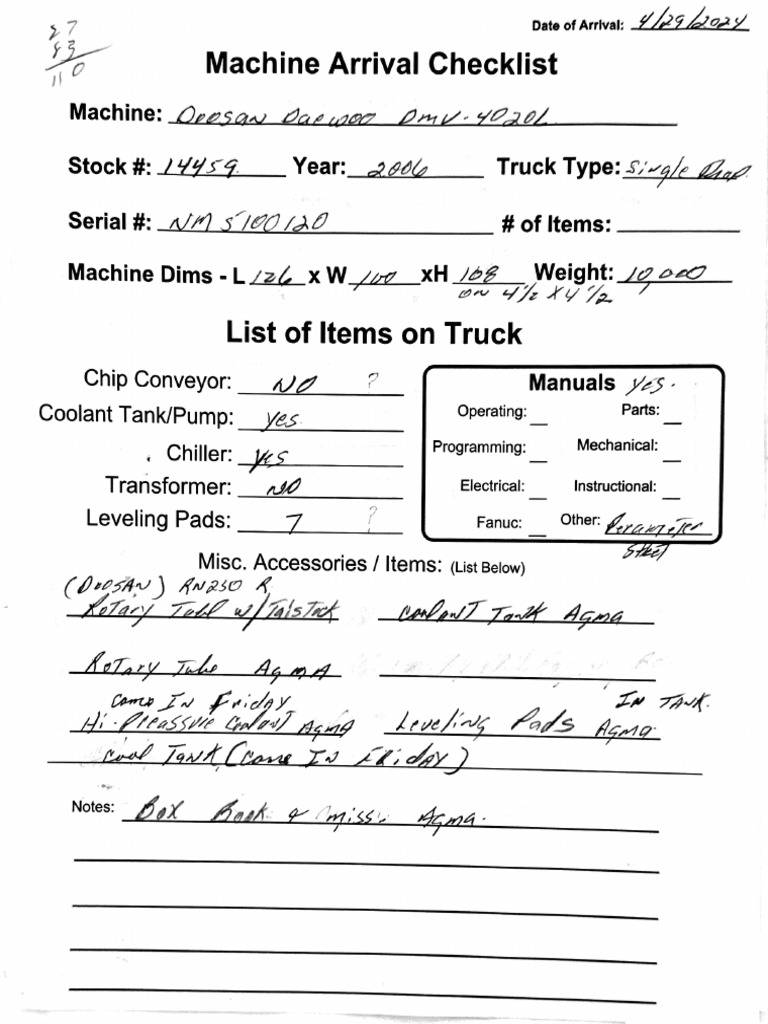 27
83
110
Date of Arrival: 4/29/2024
Machine Arrival Checklist
Machine: Doosan Daewoo DMV-4020L
Stock #: 14459 Year: 2006 Truck Type: Single Drop
Serial #: NM5100120 # of Items:
Machine Dims - L 126 x W 100 xH 108 Weight: 10,000
on 4 1/2 x 4 1/2
List of Items on Truck
Chip Conveyor: NO ?
Coolant Tank/Pump: yes
Chiller: yes
Transformer: NO
Leveling Pads: 7 ?
Manuals yes.
Operating: Parts:
Programming: Mechanical:
Electrical: Instructional:
Fanuc: Other: Perameter
Sheet
Misc. Accessories / Items: (List Below)
(DOOSAN) RN230 R
Rotary Tabl w/Talstock Coolant Tank Agma
Rotary Tabe AgmA
Came In Friday In Tank.
Hi-Preassure Coolant AgmA Leveling Pads Agma
Cool Tank (Came In Friday)
Notes: Box Book & miss. Agma.